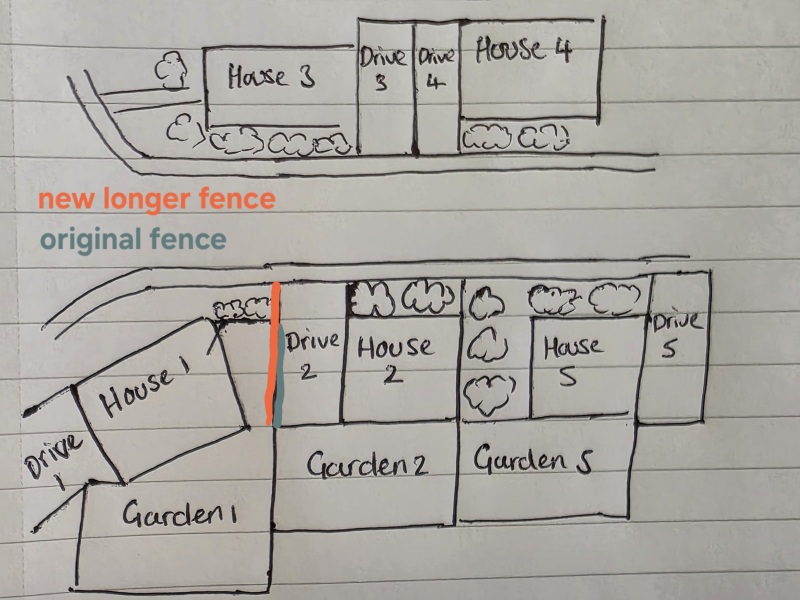 House 3
Drive
3
Drive
4
House 4
new longer fence
original fence
House 1
Drive
1
Garden 1
Drive
2
House
2
Garden 2
House
5
Drive
5
Garden 5